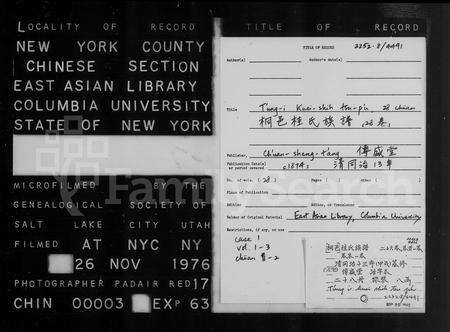 LOCALITY OF RECORD
NEW YORK COUNTY
CHINESE SECTION
EAST ASIAN LIBRARY
COLUMBIA UNIVERSITY
STATE OF NEW YORK
MICROFILMED BY THE
GENEALOGICAL SOCIETY OF
SALT LAKE CITY UTAH
FILMED AT NYC NY
26 NOV 1976
PHOTOGRAPHER PADAIR RED 17
CHIN 00003 EXP 63
TITLE OF RECORD
TITLE OF RECORD 2252.8/4491
Author(s) Author's date(s)
Title Tung-i Kuei-shih tsu-pu 28 chüan
桐邑桂氏族譜, 28卷,
Publisher, Chuan-sheng-tang 傳盛堂
Publication Date(s)
or period covered c1874; 清同治13年
No. of vols. (28) Pages ( ) Other ( )
Place of Publication
Edition Editor, or Translator
Holder of Original Material East Asian Library, Columbia University
Restrictions, if any, on use
case 1
vol. 1-3
chüan 首-2
桐邑桂氏族譜
傳盛堂
二十八冊
FamilySearch